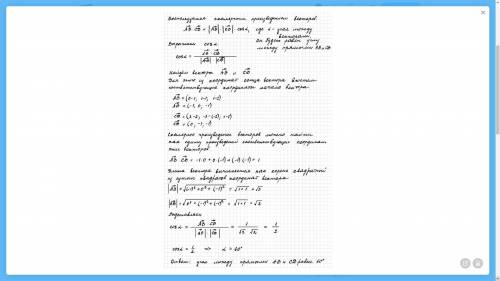 Воспользуемся скалярным произведением векторов:
AB · CD = |AB| · |CD| · cos α, где α - угол между
векторами.
Он будет равен углу
между прямыми AB и CD
Выразим cos α
cos α = AB · CD / |AB| · |CD|
Найдём вектора AB и CD
Для этого из координат конца вектора вычтем
соответствующие координаты начала вектора.
AB = (0-1, 1-1, 1-2)
AB = (-1, 0, -1)
CD = (2-2, -3-(-2), 1-2)
CD = (0, -1, -1)
Скалярное произведение векторов можно найти
как сумму произведений соответствующих координат
этих векторов
AB · CD = -1·0 + 0·(-1) + (-1)·(-1) = 1
Длина вектора вычисляется как корень квадратный
из суммы квадратов координат вектора
|AB| = √(-1)² + 0² + (-1)² = √1+1 = √2
= √0² + (-1)² + (-1)² = √1+1 = √2
Подставляем
cos α = AB · CD / |AB| · |CD| = 1 / √2 · √2 = 1/2
cos α = 1/2 => α = 60°
Ответ: угол между прямыми AB и CD равен 60°